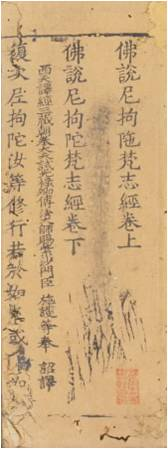 佛說尼拘陁梵志經卷上
佛說尼拘陀梵志經卷下
西天譯經三藏朝奉大夫試光祿卿傳法大師賜紫沙門臣施護等奉 詔譯
復次尼拘陀汝等修行若於如是